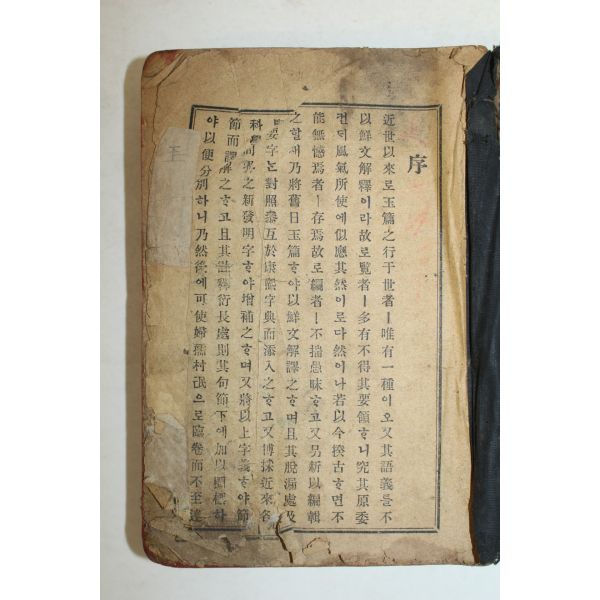 序
近世以來로玉篇之行于世者ㅣ唯有一種이오又其語義를不
以鮮文解釋이라故로覽者ㅣ多有不得其要領ᄒᆞ니究其原委
컨ᄃᆡ風氣所使에似應其然이로다然이나若以今揆古ᄒᆞ면不
能無憾焉者ㅣ存焉故로編者ㅣ不揣愚昧ᄒᆞ고又另新以編輯
之ᄒᆞᆯᄉᆡ乃將舊日玉篇ᄒᆞ야以鮮文解譯之ᄒᆞ며且其脫漏處及
要字ᄂᆞᆫ對照叅互於康熙字典而添入之ᄒᆞ고又博採近來各
科學問界之新發明字ᄒᆞ야增補之ᄒᆞ며又將以上字義ᄒᆞ야節
節而譯解之ᄒᆞ고且其註釋衍長處則其句節下에加以圈標ᄒᆞ
야以便分別하니乃然後에可使婦孺村氓으로臨卷而不至違